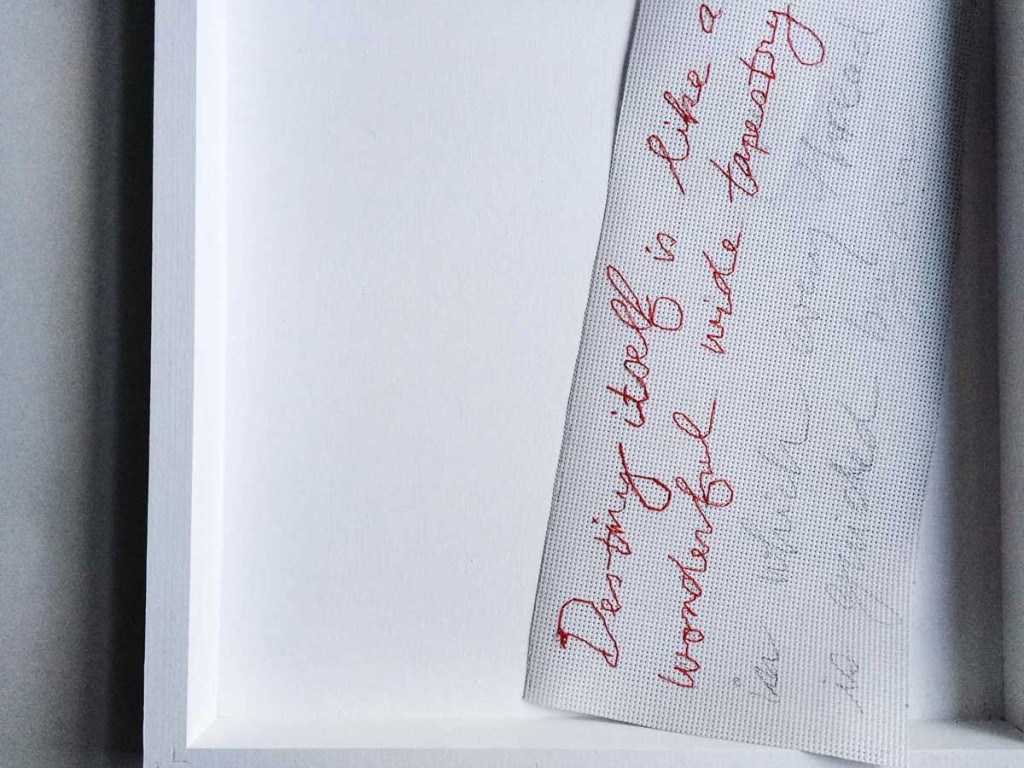 Destiny itself is like a
wonderful wide tapestry
in which every thread
is guided by an